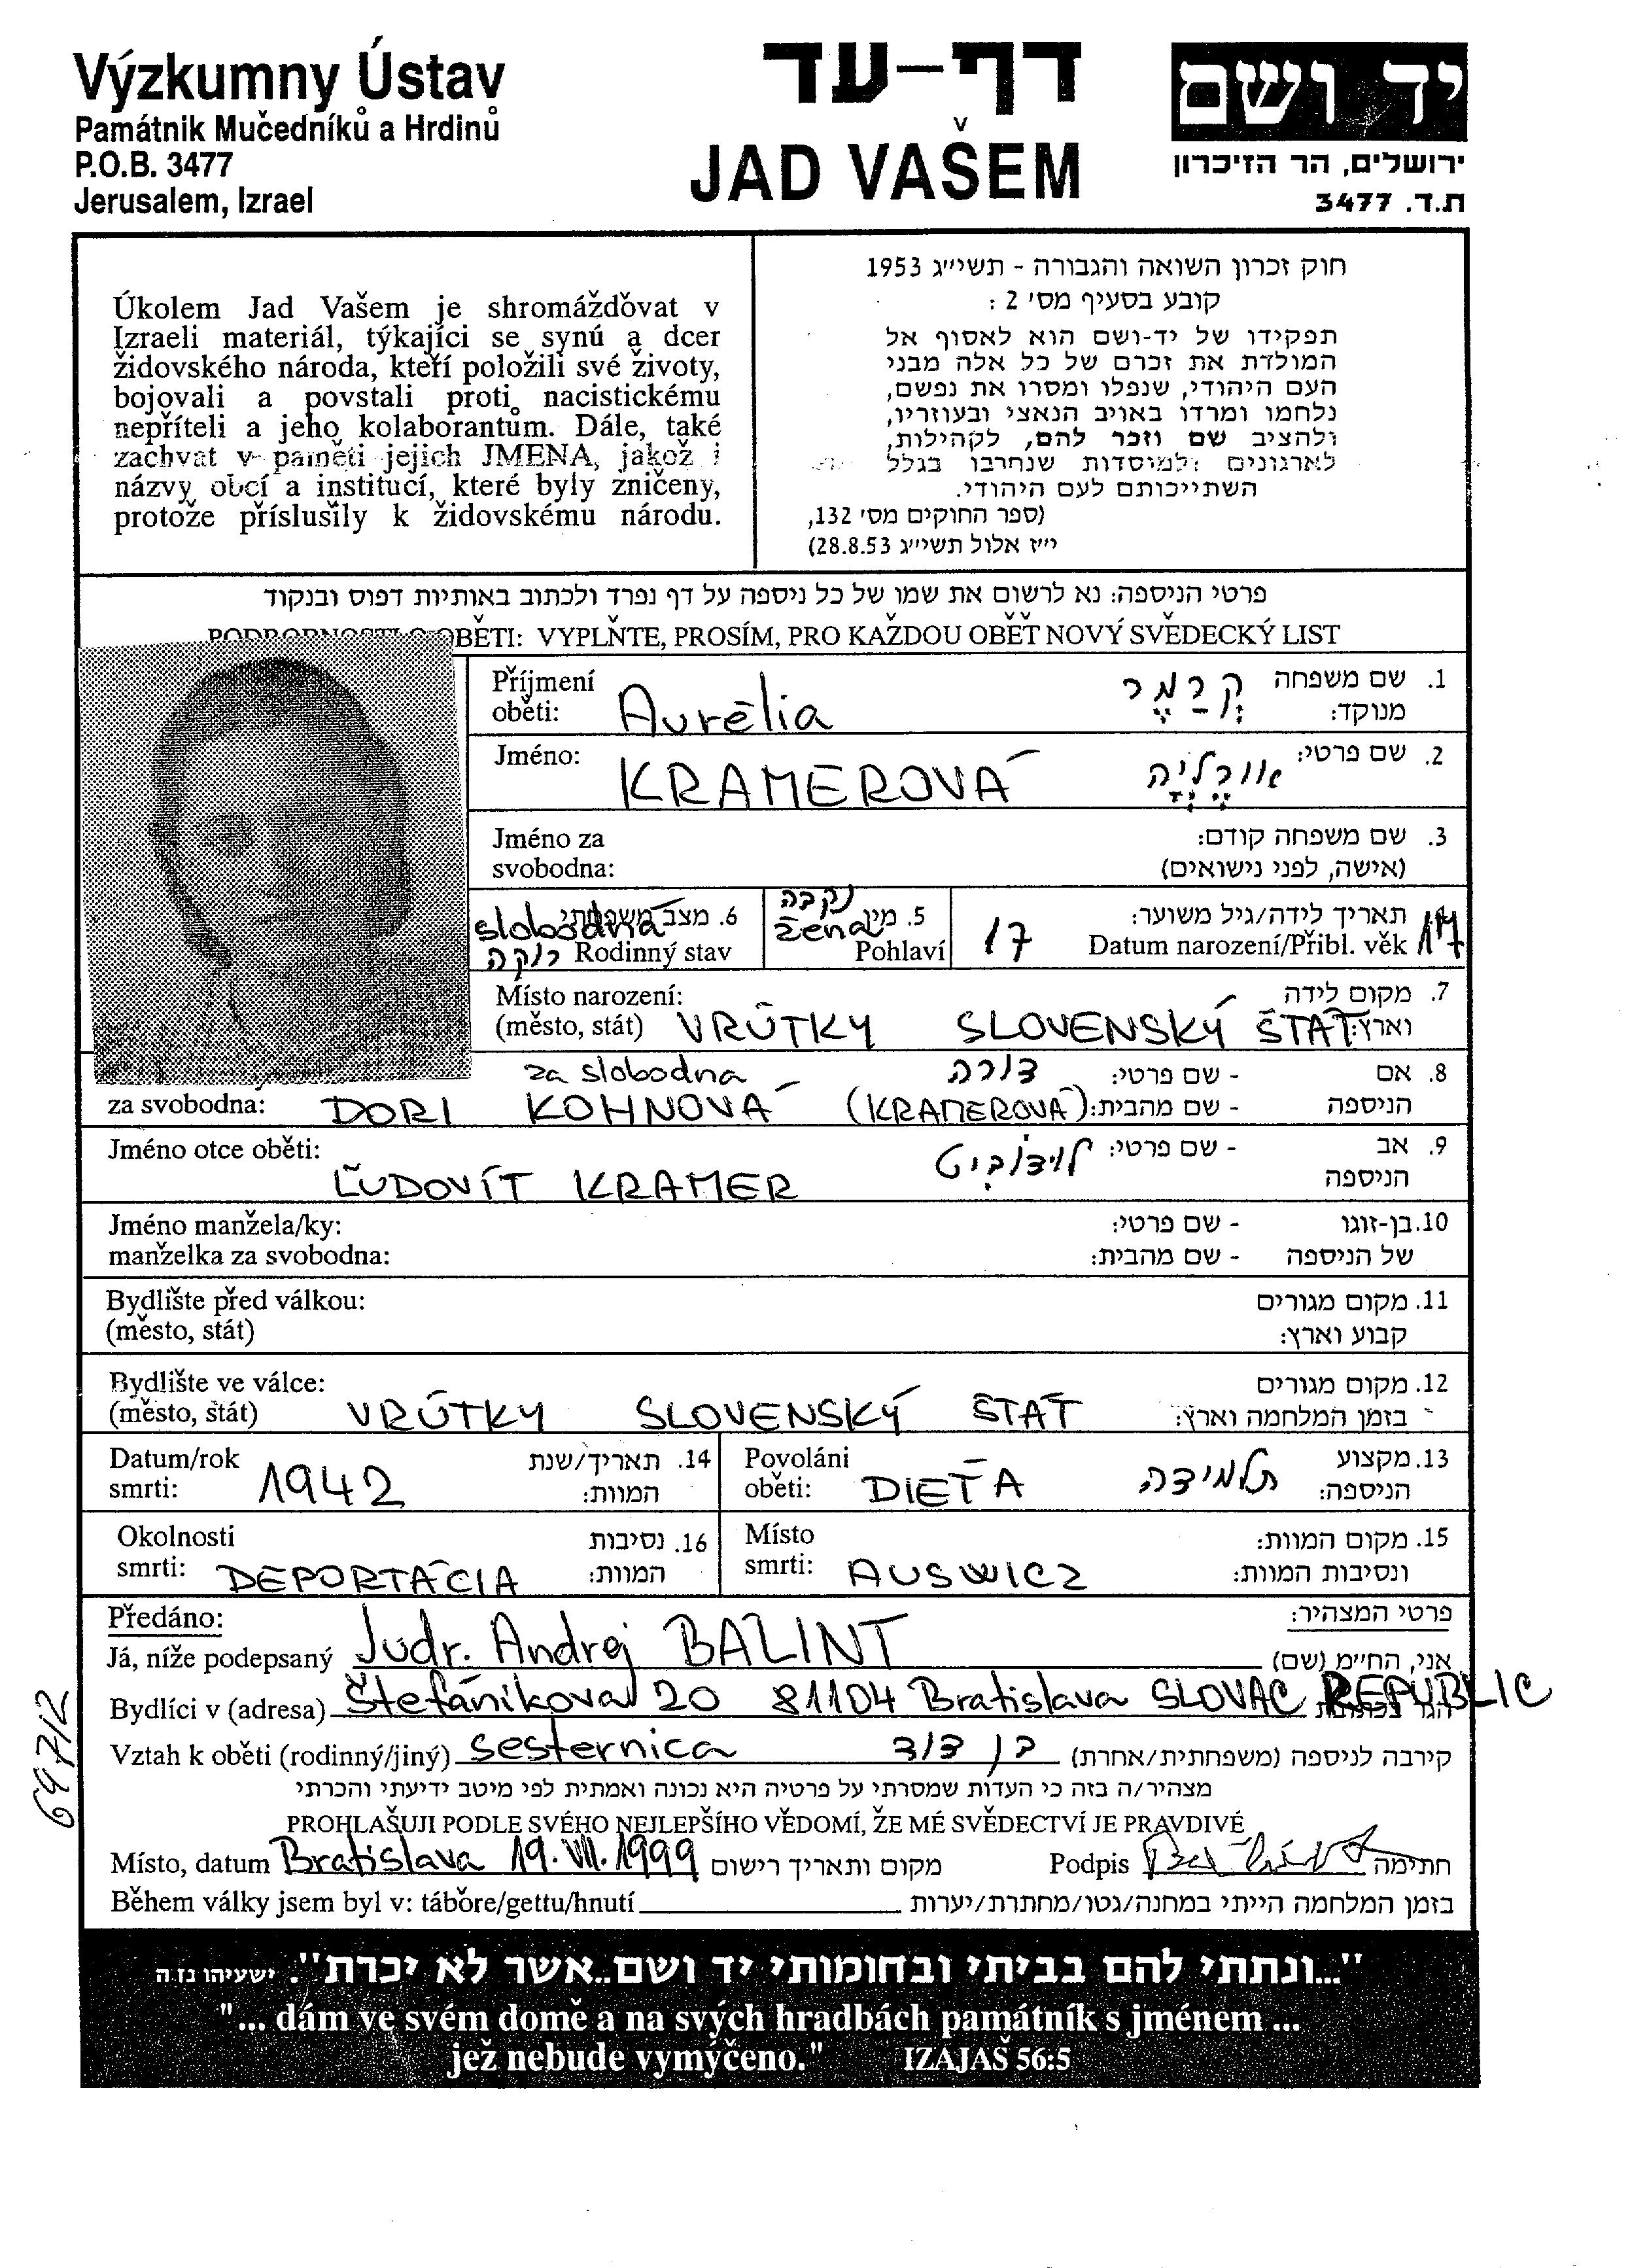 Výzkumny Ústav
Památnik Mučedníků a Hrdinů
P.O.B. 3477
Jerusalem, Izrael
דף-עד
JAD VAŠEM
יד ושם
ירושלים, הר הזיכרון
ת.ד. 3477
Úkolem Jad Vašem je shromážďovat v
Izraeli materiál, týkajíci se synú a dcer
židovského národa, kteří položili své životy,
bojovali a povstali proti nacistickému
nepříteli a jeho kolaborantům. Dále, také
zachvat v paměti jejich JMENA, jakož i
názvy obcí a institucí, které byly zničeny,
protože příslušily k židovskému národu.
חוק זכרון השואה והגבורה - תשי״ג 1953
קובע בסעיף מס׳ 2 :
תפקידו של יד-ושם הוא לאסוף אל
המולדת את זכרם של כל אלה מבני
העם היהודי, שנפלו ומסרו את נפשם,
נלחמו ומרדו באויב הנאצי ובעוזריו,
ולהציב שם וזכר להם, לקהילות,
לארגונים ולמוסדות שנחרבו בגלל
השתייכותם לעם היהודי.
(ספר החוקים מס׳ 132,
י״ז אלול תשי״ג 28.8.53)
פרטי הניספה: נא לרשום את שמו של כל ניספה על דף נפרד ולכתוב באותיות דפוס ובנקוד
PODROBNOSTI O OBĚTI: VYPLŇTE, PROSÍM, PRO KAŽDOU OBĚŤ NOVÝ SVĚDECKÝ LIST
Příjmení
oběti: Aurélia
קרמר
1. שם משפחה
מנוקד:
Jméno: KRAMEROVÁ
אורליה
2. שם פרטי:
Jméno za
svobodna:
3. שם משפחה קודם:
(אישה, לפני נישואים)
slobodna
6. מצב משפחתי
רווקה Rodinný stav
נקבה
žena 5. מין
Pohlaví
17
4. תאריך לידה/גיל משוער:
Datum narození/Přibl. věk 17
Místo narození:
(město, stát) VRÚTKY SLOVENSKÝ ŠTÁT
7. מקום לידה
וארץ:
za slobodna
דורה
8. אם - שם פרטי:
za svobodna: DORI KOHNOVÁ (KRAMEROVÁ)
הניספה - שם מהבית:
Jméno otce oběti:
ĽUDOVÍT KRAMER
9. אב - שם פרטי:
הניספה
Jméno manžela/ky:
manželka za svobodna:
10. בן-זוגו - שם פרטי:
של הניספה - שם מהבית:
Bydliště před válkou:
(město, stát)
11. מקום מגורים
קבוע וארץ:
Bydliště ve válce:
(město, stát) VRÚTKY SLOVENSKÝ ŠTÁT
12. מקום מגורים
בזמן המלחמה וארץ:
Datum/rok
smrti: 1942
14. תאריך/שנת
המוות:
Povoláni
oběti: DIEŤA
תלמידה
13. מקצוע
הניספה:
Okolnosti
smrti: DEPORTÁCIA
16. נסיבות
המוות:
Místo
smrti: AUSWICZ
15. מקום המוות:
ונסיבות המוות:
Předáno:
פרטי המצהיר:
Já, níže podepsaný Judr. Andrej BALINT אני, החיימ (שם)
Bydlíci v (adresa) Štefánikova 20 81104 Bratislava SLOVAC REPUBLIC
Vztah k oběti (rodinný/jiný) sesternica בן דוד קירבה לניספה (משפחתית/אחרת)
מצהיר/ה בזה כי העדות שמסרתי על פרטיה היא נכונה ואמתית לפי מיטב ידיעתי והכרתי
PROHLAŠUJI PODLE SVÉHO NEJLEPŠÍHO VĚDOMÍ, ŽE MÉ SVĚDECTVÍ JE PRAVDIVÉ
Místo, datum Bratislava 19.VII.1999 מקום ותאריך רישום Podpis חתימה
Během války jsem byl v: táboře/gettu/hnutí בזמן המלחמה הייתי במחנה/גטו/מחתרת/יערות
"...ונתתי להם בביתי ובחומותי יד ושם..אשר לא יכרת". ישעיהו נו:ה
"... dám ve svém domě a na svých hradbách památník s jménem ...
jež nebude vymýčeno." IZAJAŠ 56:5